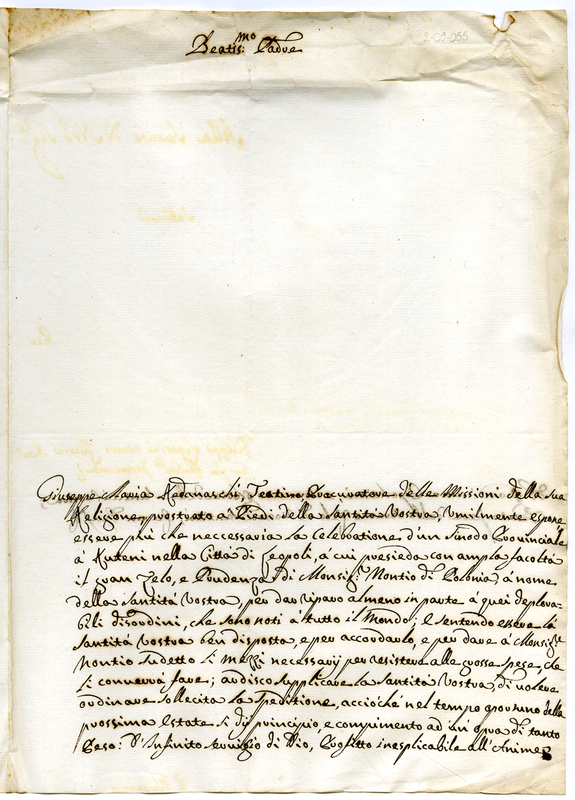 2-09-055
Beatis:mo Padre
Giuseppe Maria Redanaschi Teatino, Procuratore delle Missioni della sua
Religione, prostrato a' Piedi della Santità Vostra, Umilmente espone
essere più che neccessaria la Celebratione d'un Sinodo Provinciale
á Ruteni nella Città di Leopoli, á cui presieda con ampla facoltà
il gran Zelo, e Prudenza di Monsig:r Nontio di Polonia, á nome
della Santità Vostra, per dar riparo almeno in parte á quei deplora-
bili disordini, che sono noti á tutto il Mondo; E sentendo essere la
Santità Vostra ben disposta, e per accordarlo, e per dare á Monsig:r
Nontio sudetto li mezzi necessarij per resistere alle grosse spese, che
li converrà fare; ardisco supplicare la Santità Vostra, di volere
ordinare sollecita la speditione, acciochè nel tempo opportuno della
prossima Estate si dij principio, e compimento ad un' opra di tanto
Peso: D'Infinito servigio di Dio, Profitto inesplicabile all'Anime,